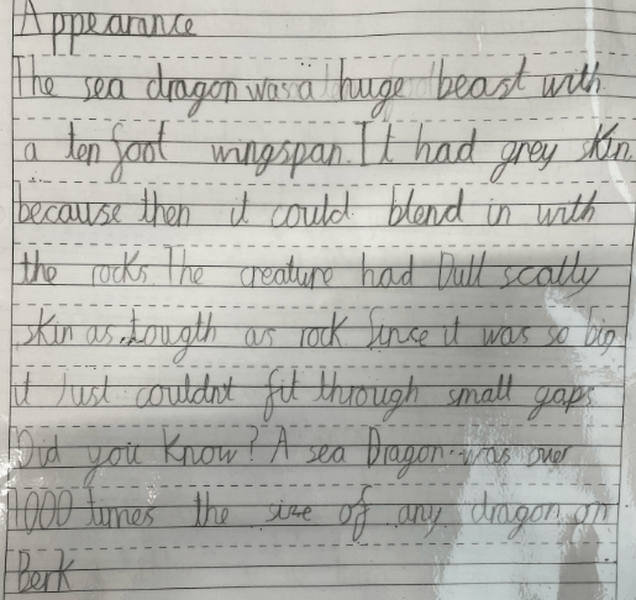 Appearance
The sea dragon was a huge beast with
a ten foot wingspan. It had grey skin
because then it could blend in with
the rocks. The creature had Dull scally
skin as tougth as rock Since it was so big
it Just couldn't fit through small gaps
Did you Know? A sea Dragon was over
1000 times the size of any dragon on
Berk